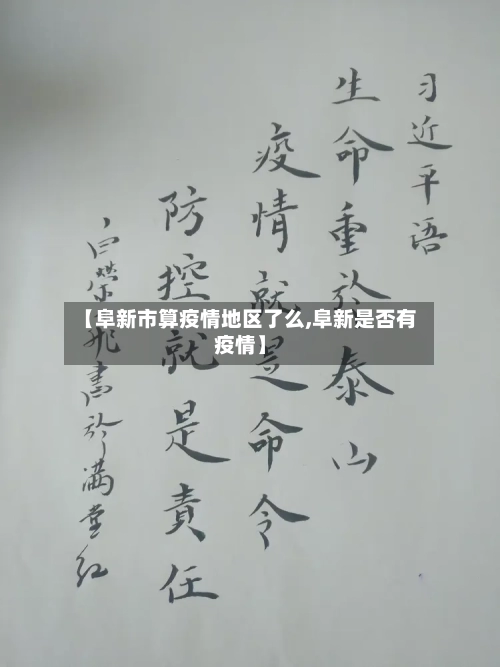 习近平语
生命重於泰山
疫情就是命令
防控就是責任
白榮飛書於满堂红
【阜新市算疫情地区了么,阜新是否有
疫情】